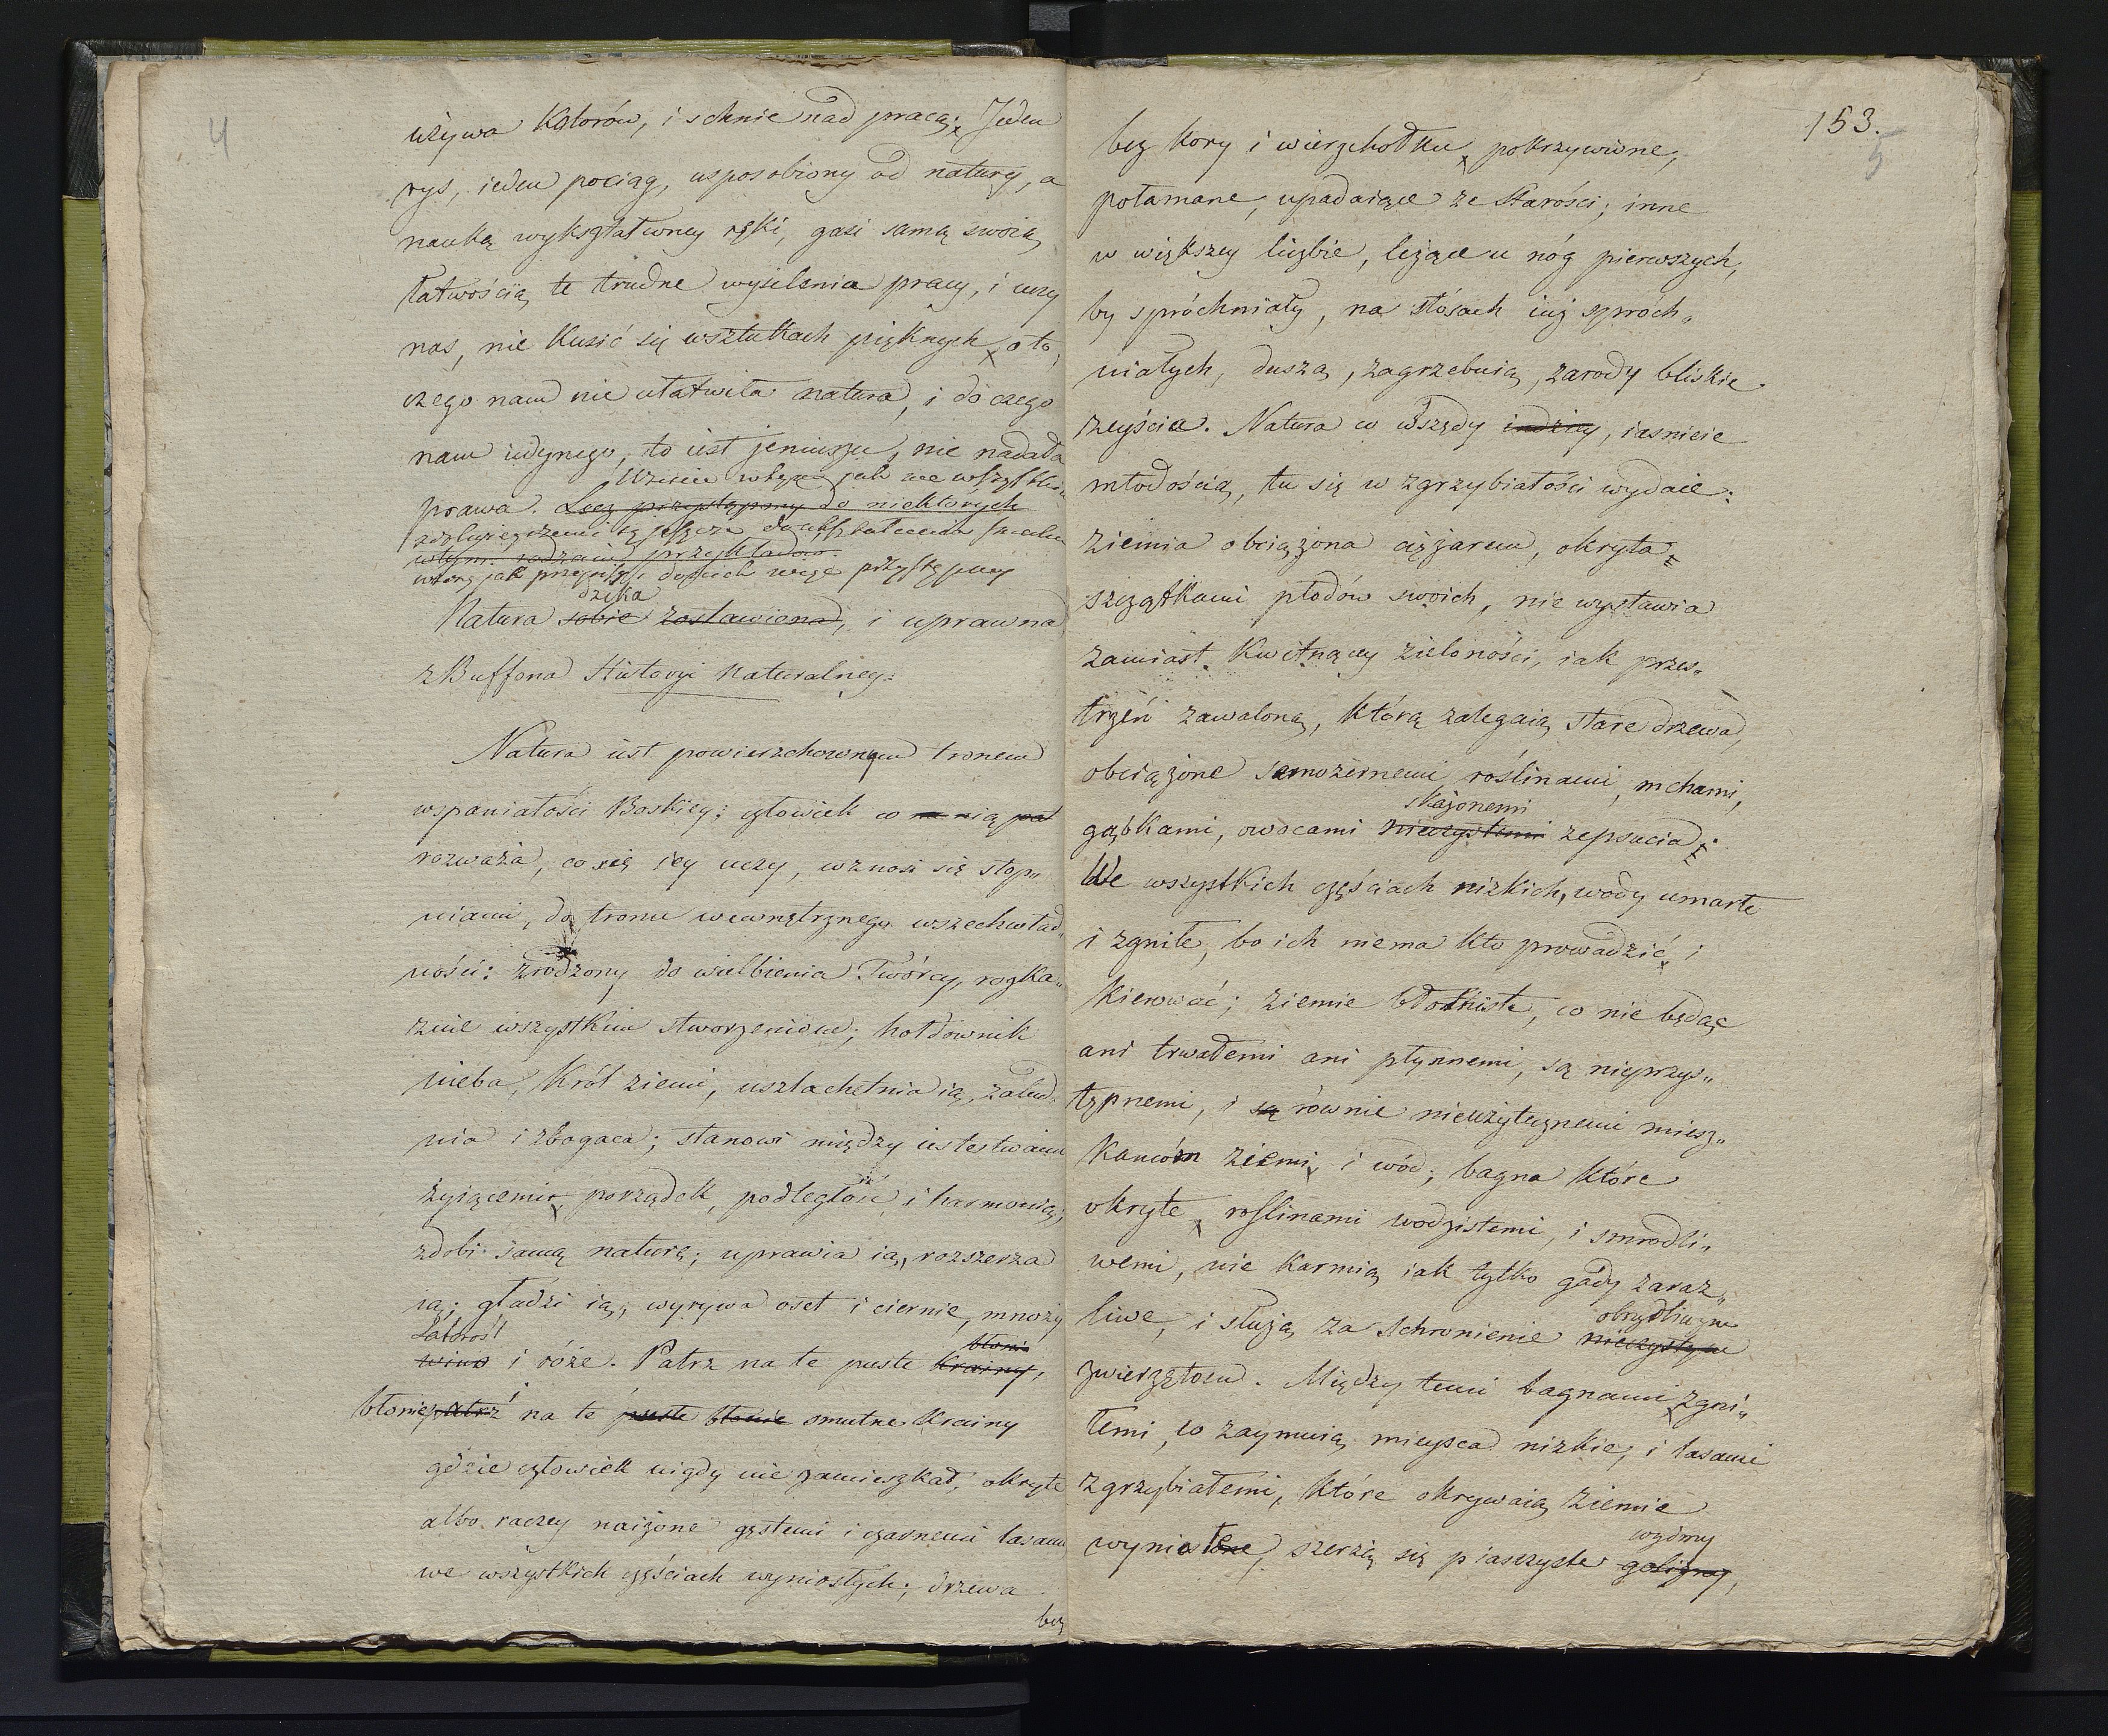 4
używa Kolorów, i schnie nad pracą; Jeden
rys, ieden pociąg, usposobiony od natury, a
nauką wykształconey ręki, gasi samą swoią
łatwością te trudne wysilenia pracy, i uczy
nas, nie Kusić się w sztukach pięknych, o to,
czego nam nie ułatwiła natura, i do czego
nam iedynego, to iest jeniuszu, nie nadała
prawa. Lecz przystąpmy do niektórych
w tym rodzaiu przykładów.
dzika
Natura sobie zostawiona, i uprawna
z Buffona Historyi Naturalney:
Natura iest powierzchownym tronem
wspaniałości Boskiey: człowiek co na nią pat
rozważa, co się iey uczy, wznosi się stop„
niami, do tronu wewnętrznego wszechwład„
ności: zrodzony do wielbienia Twórcy, rozka„
zuie wszystkim stworzeniom; hołdownik
nieba, Król ziemi, uszlachetnia ią, zalud„
nia i zbogaca; stanowi między iestestwami
żyiącemi, porządek, podległość, i harmonią;
zdobi samą naturę; uprawia ią, rozszerza
ią; gładzi ią, wyrywa oset i ciernie, mnoży
Latorośl
wino i róże. Patrz na te puste Krainy,
błonia
błonie patrz na te puste błonie smutne Krainy
gdzie człowiek nigdy nie zamieszkał, okryte
albo raczey naiżone gęstemi i czarnemi lasami
we wszystkich częściach wyniosłych; drzewa
bez
153.
5
bez kory i wierzchołku, pokrzywione,
połamane, upadaiące ze starości; inne
w większey liczbie, leżące u nóg pierwszych,
by spróchniały, na stósach iuż spróch„
niałych, duszą, zagrzebuią, zarody bliskie
zeyścia. Natura co wszędy indziey, iasnieie
młodością, tu się w zgrzybiałości wydaie:
ziemia obciążona ciężarem, okryta
szczątkami płodów swoich, nie wystawia
zamiast Kwitnącey zieloności, iak przes„
trzeń zawaloną, którą zalegaią stare drzewa,
obciążone samozirnemi roślinami, mchami,
skażonemi
gąbkami, owocami nieczystemi zepsucia;
We wszystkich częściach nizkich, wody umarłe
i zgniłe, bo ich niema kto prowadzić, i
Kierować; ziemie błotniste, co nie będąc
ani trwałemi ani płynnemi, są nieprzys„
tępnemi, i są równie nieużytecznemi miesz„
Kańcóm ziemi, i wód; bagna które
okryte roślinami wodzistemi, i smrodli„
wemi, nie Karmią iak tylko gady zaraz„
liwe, i służą za schronienie nieczystym
obrzydliwym
zwierzętom. Między temi bagnami zgni„
łemi, co zaymuią mieysca nizkie, i lasami
zgrzybiałemi, które okrywaią ziemie
wyniosłe, szerzą się piasczyste golizny,
wydmy